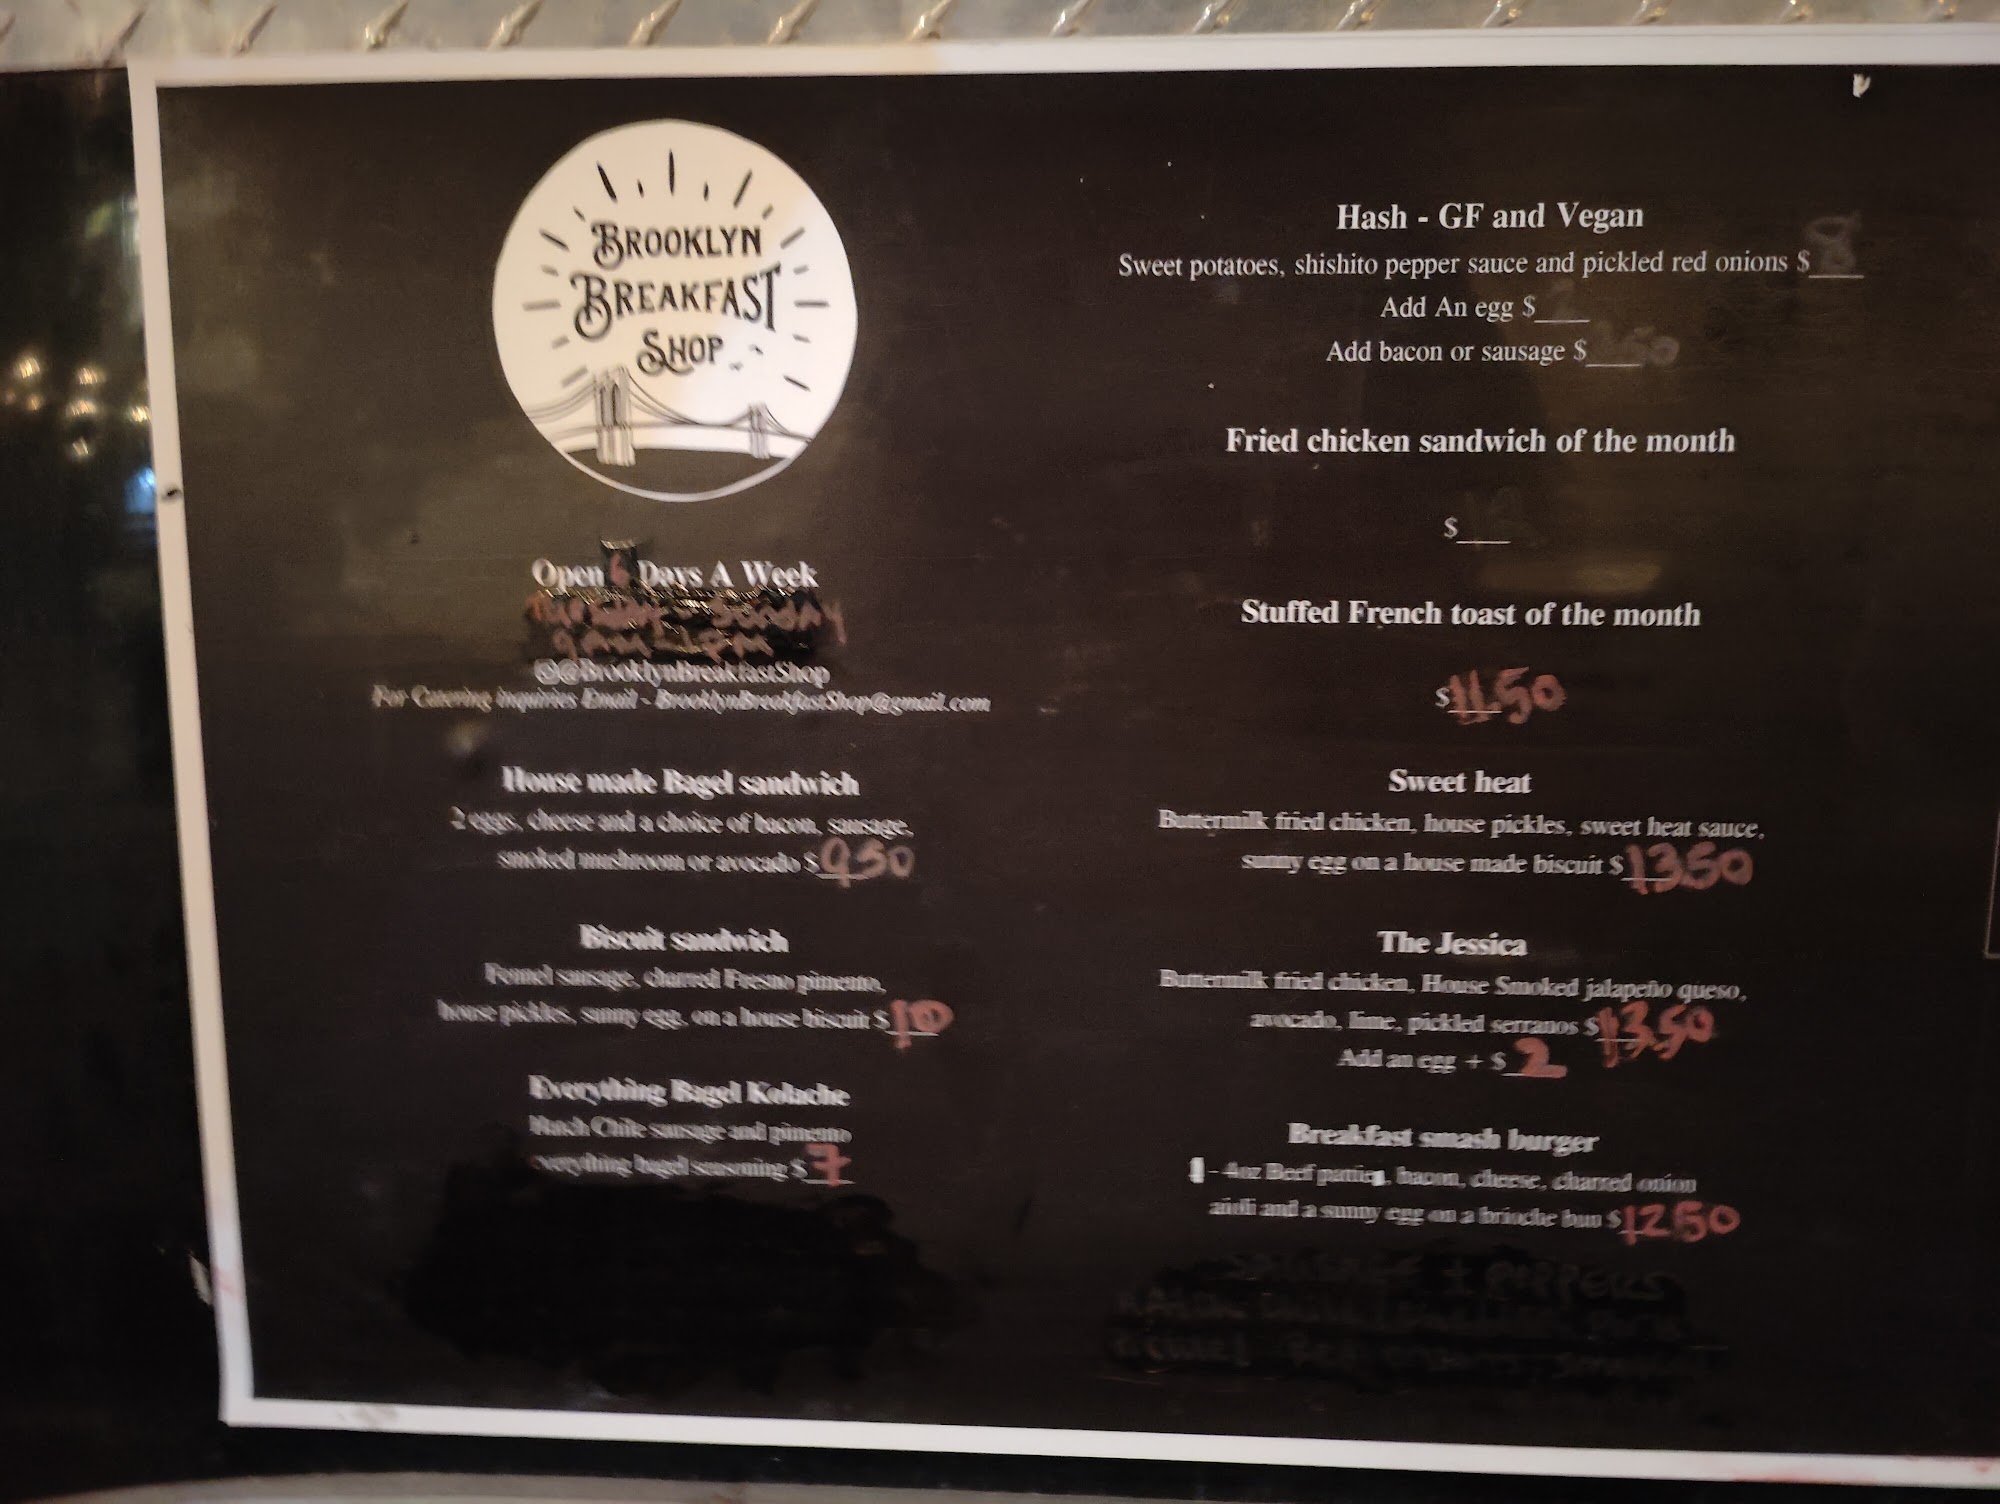 BROOKLYN
BREAKFAST
SHOP
Open 6 Days A Week
Sunday
9am
@BrooklynBreakfastShop
For Catering inquiries Email - BrooklynBreakfastShop@gmail.com
House made Bagel sandwich
2 eggs, cheese and a choice of bacon, sausage,
smoked mushroom or avocado $950
Biscuit sandwich
Fennel sausage, charred Fresno pimento,
house pickles, sunny egg, on a house biscuit $10
Everything Bagel Kolache
Hatch Chile sausage and pimento
everything bagel seasoning $7
Hash - GF and Vegan
Sweet potatoes, shishito pepper sauce and pickled red onions $8
Add An egg $
Add bacon or sausage $
Fried chicken sandwich of the month
$
Stuffed French toast of the month
$11.50
Sweet heat
Buttermilk fried chicken, house pickles, sweet heat sauce,
sunny egg on a house made biscuit $13.50
The Jessica
Buttermilk fried chicken, House Smoked jalapeño queso,
avocado, lime, pickled serranos $13.50
Add an egg + $2
Breakfast smash burger
1 - 4oz Beef pattie, bacon, cheese, charred onion
aioli and a sunny egg on a brioche bun $1250
+ PEPPERS